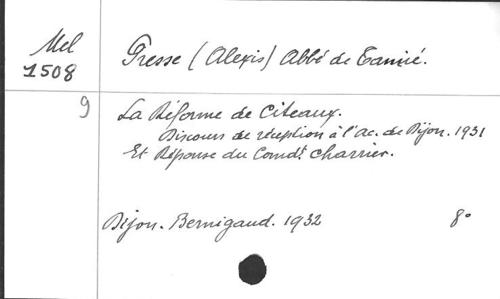 Mel
1508
Presse (Alexis) Abbé de Tamié.
9
La Réforme de Citeaux.
Discours de réception à l'Ac. de Dijon. 1931
Et Réponse du Comdt Charrier.
Dijon. Bernigaud. 1932 8°